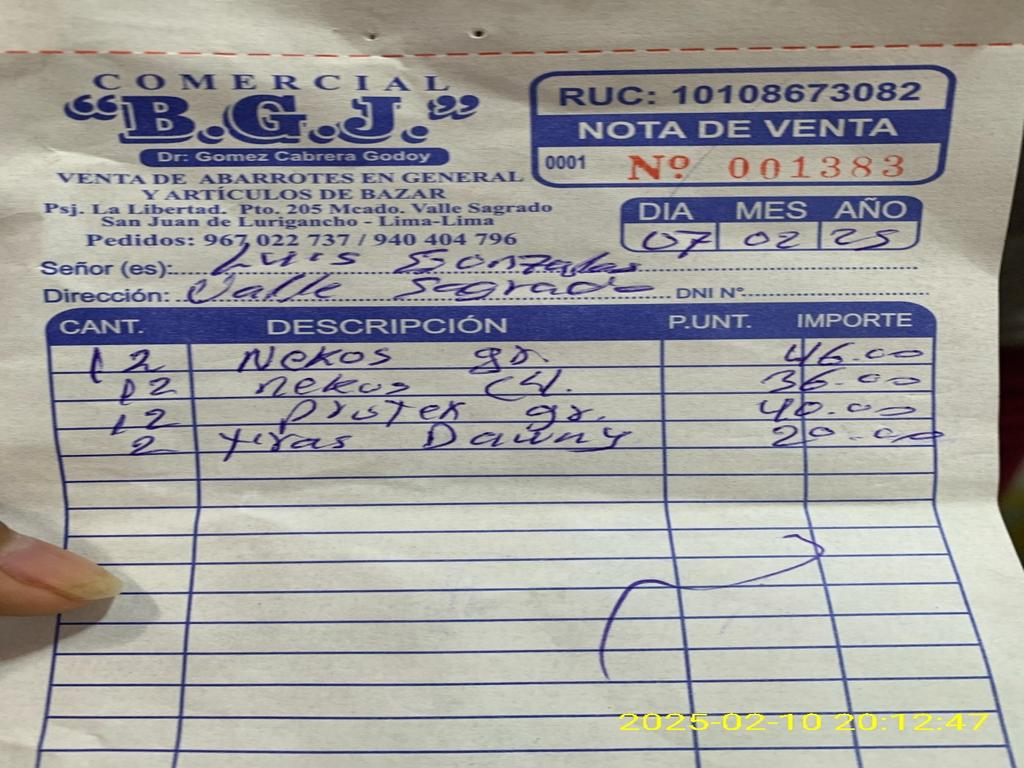 COMERCIAL
"B.G.J."
Dr: Gomez Cabrera Godoy
VENTA DE ABARROTES EN GENERAL
Y ARTÍCULOS DE BAZAR
Psj. La Libertad. Pto. 205 Mcado. Valle Sagrado
San Juan de Lurigancho - Lima-Lima
Pedidos: 967 022 737 / 940 404 796
RUC: 10108673082
NOTA DE VENTA
0001 Nº 001383
DIA MES AÑO
07 02 25
Señor (es): Luis Gonzales
Dirección: Valle Sagrado DNI Nº
CANT. DESCRIPCIÓN P.UNT. IMPORTE
12 Nekos gr. 46.00
12 nekos 36.00
12 protex gr. 40.00
2 tiras Dawny 20.00
2025-02-10 20:12:47